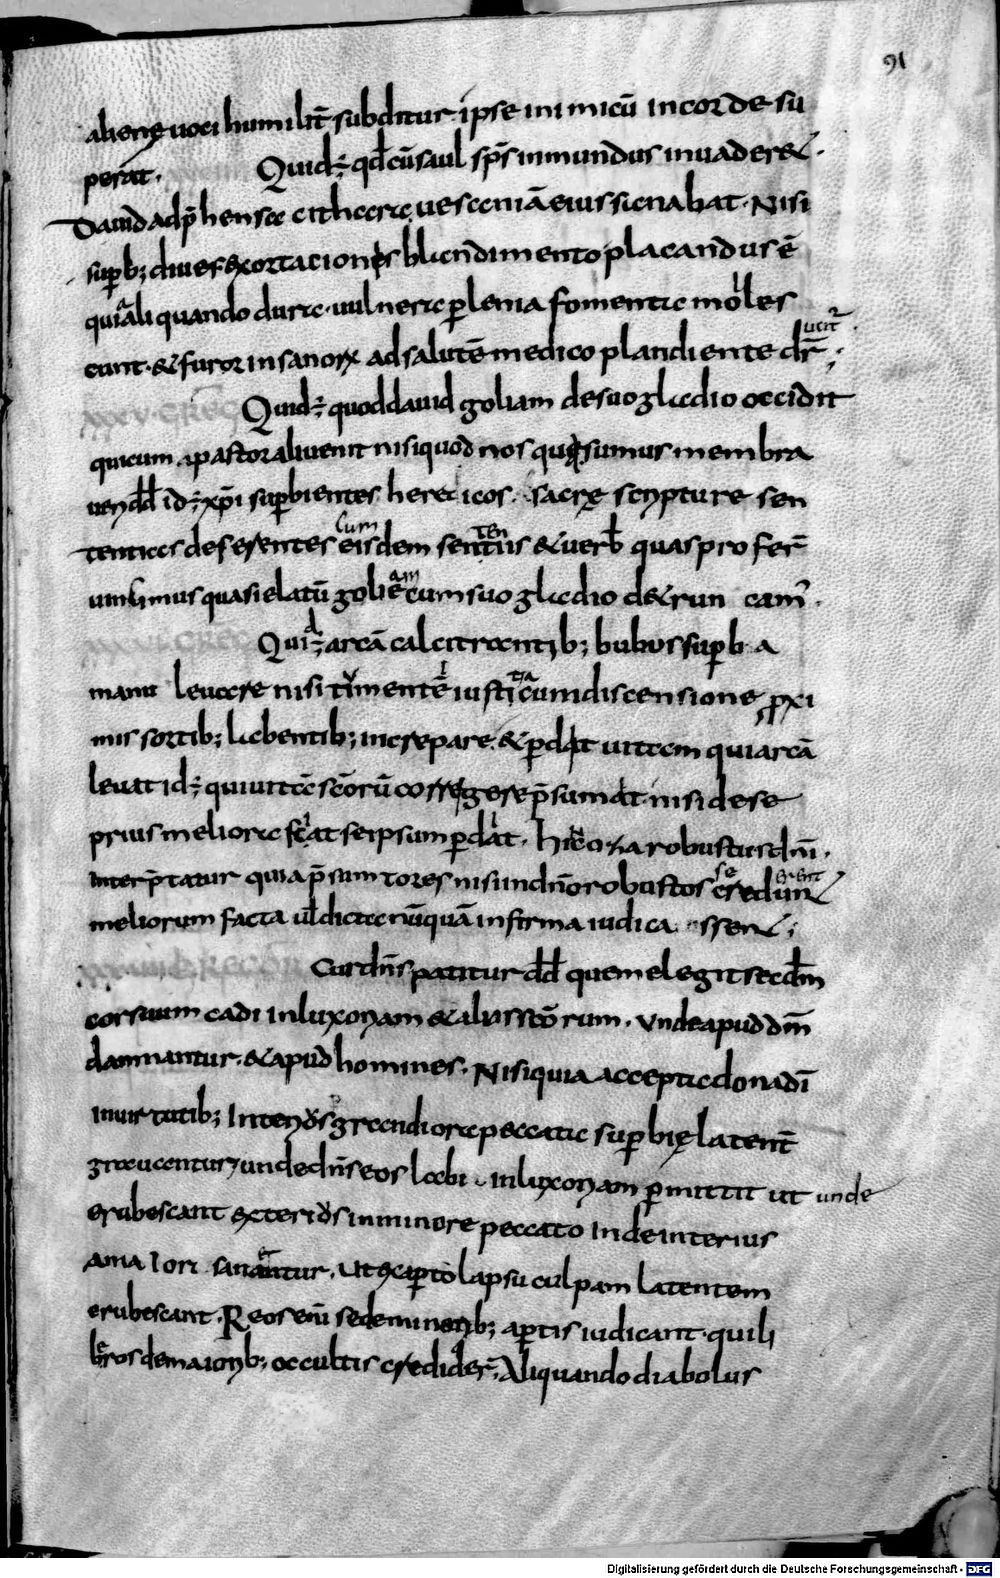 91
alienę uoci humilit̄ subditur ipse inimicū in corde su
perat. Quid ÷ qđ cū saul sp̄s inmundus inuaderet.
Dauid adp̄hensa cithara uesaniā eius sienabat. Nisi
superb; diues exortacionis blandimento placandus ē
quia aliquando dura uulnera ꝑ lenia fomenta molles
cunt. & furor insanorꝝ ad salutē medico plandiente dr̄ ucit̄;
XXXV. GREG Quid ÷ quod dauid goliam de suo gladio occidit
qui cum a pastorali uenit nisi quod nos qui sumus membra
ueri dd̄ id ÷ xp̄i superbientes hereticos sacrę scripture sen
tentias deferentes cum eisdem sententiis & uerb̄ quas profer̄
uincimus quasi elatū goliam cum suo gladio detruncam̄.
XXXVI GREG Quid ÷ arcā calcitrantib; bubus superba
manu leuare nisi timentē iustitia cum discensione proxi
mis sortib; labentib; increpare. & perdat uitam qui arcā
leuat id ÷ qui uitā sc̄orū corregere p̄sumat. nisi de se
prius meliora sciat se ipsum perdat. hic oza robustus dn̄i.
interp̄tatur quia p̄sumtores nisi in dn̄o robustos se crederent
meliorum facta ul̄ dicta nūquā infirma iudicassent;
XXXVII GREGOR Cur dn̄s patitur dd̄ quem elegit secd̄m
cor suum cadi in luxoriam & alussc̄orum. Unde apud dm̄
damnantur. & apud homines. Nisi quia accepta dona dī
in uirtutib; interiꝰs grandiora peccata superbię latent̄
grauantur unde dn̄s eos labi in luxoriam permittit ut unde
erubescant exteriꝰs in minore peccato inde interius
a maiori sanantur. Ut ex aperto lapsu culpam latentem
erubescant. Reos eni̅ se de minorib; apertis iudicant. qui li
beros de maiorib; occultis credider̄. Aliquando diabolus
Digitalisierung gefördert durch die Deutsche Forschungsgemeinschaft - DFG